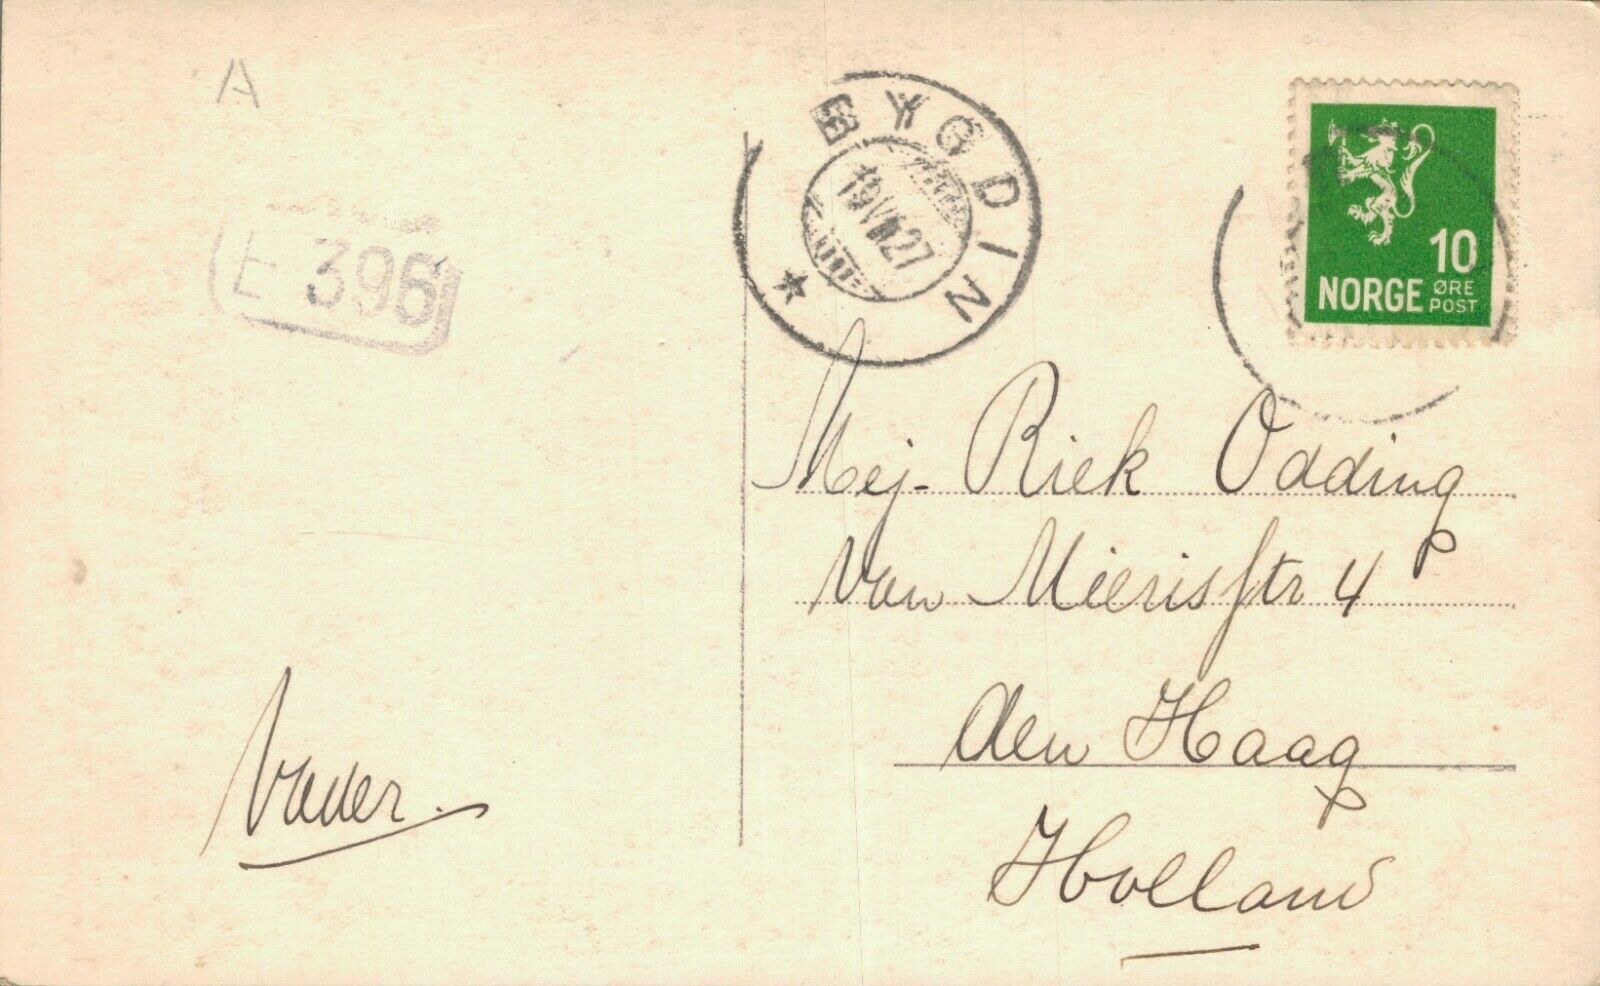 A
E 396
BYGDIN
19 VII 27
10
NORGE
ØRE
POST
Mej. Riek Odding
Van Mierisstr 4
den Haag
Holland
Vader.